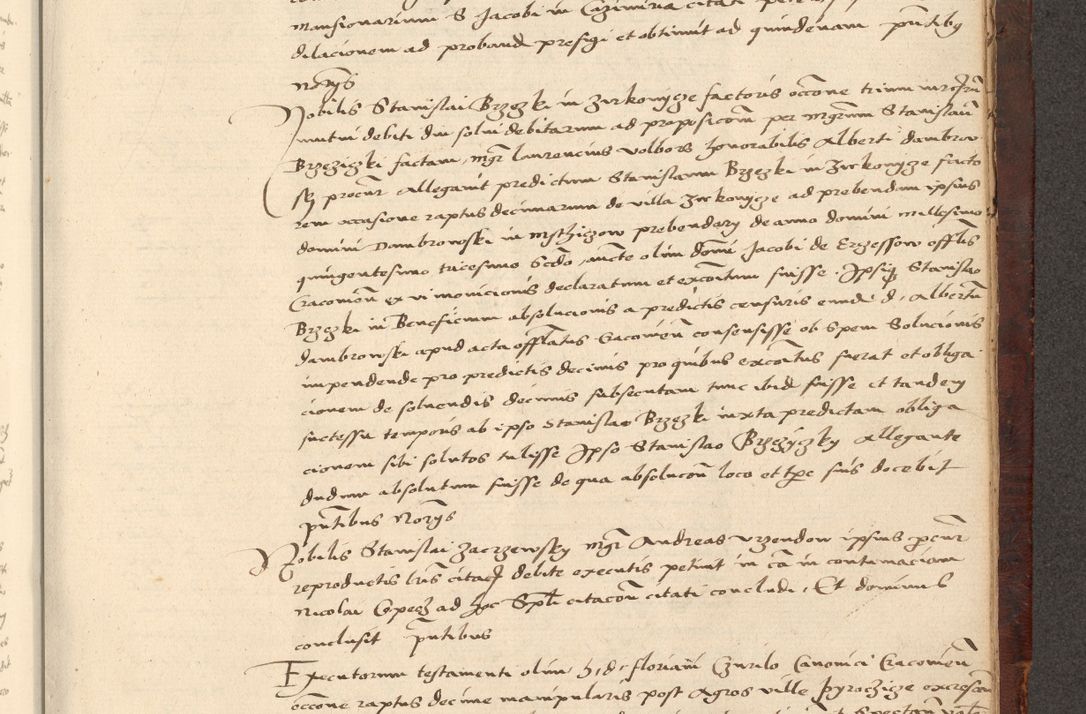 mansionarium S Jacobi in Cazimiria citati
dilacionem ad proband presigi et obtinuit ad quindenam pntibus
notarys
Nobilis Stanislai Brzezki in Zyrkowycze factoris occone trium
mutui debiti deu solui debitarum ad proposicom per mgrum Stanislaum
Brzeziczki factam, mgr laurencius Volbors honorabilis Alberti dambrow
sky procur Allegavit predictum Stanislaum Brzezki in Zyrkowycze facto
rem occasione raptus decimarum de villa Zyrkowycze ad prebendam ipsius
domini Dambrowski in Msthiczow prebendary de anno domini millesimo
quingentesimo tricesimo Scdo, aucte olim domi Jacobi de Erzessow offlis
Cracomen ex vi monicionis declaratum et excoitum fuisse. Ipsiq Stanislao
Brzezki in Beneficium absolucionis a predictis censuris eund d. Albertum
dambrowski apud acta offlatus Cracomen consensisse ob Spem Solucionis
impendende pro predictis decimis pro quibus excoitus fuerat et obliga
cionem de soluendis decimis subsecutam tunc ibid fuisse et tandem
successu temporis ab ipso Stanislao Brzezki iuxta predictam obliga
cionem sibi solutos tulisse Ipso Stanislao Brzeziczky Allegante
dudum absolutum fuisse de qua absolucon loco et tpe suis docebit
pntibus Notarys
Nobilis Stanislai Zaczewsky mgr Andreas Vrzendow ipsius procur
reproductis lris citac debite executis petiuit in ca in contumaciam
Nicolai Copecz ad hoc Spli citacon citati concludi, Et dominus
conclusit pntibus
Executorum testamenti olim h. d. floriani Czurilo Canonici Cracomen
occone raptus decime manipularis post Agros ville pyroczicze